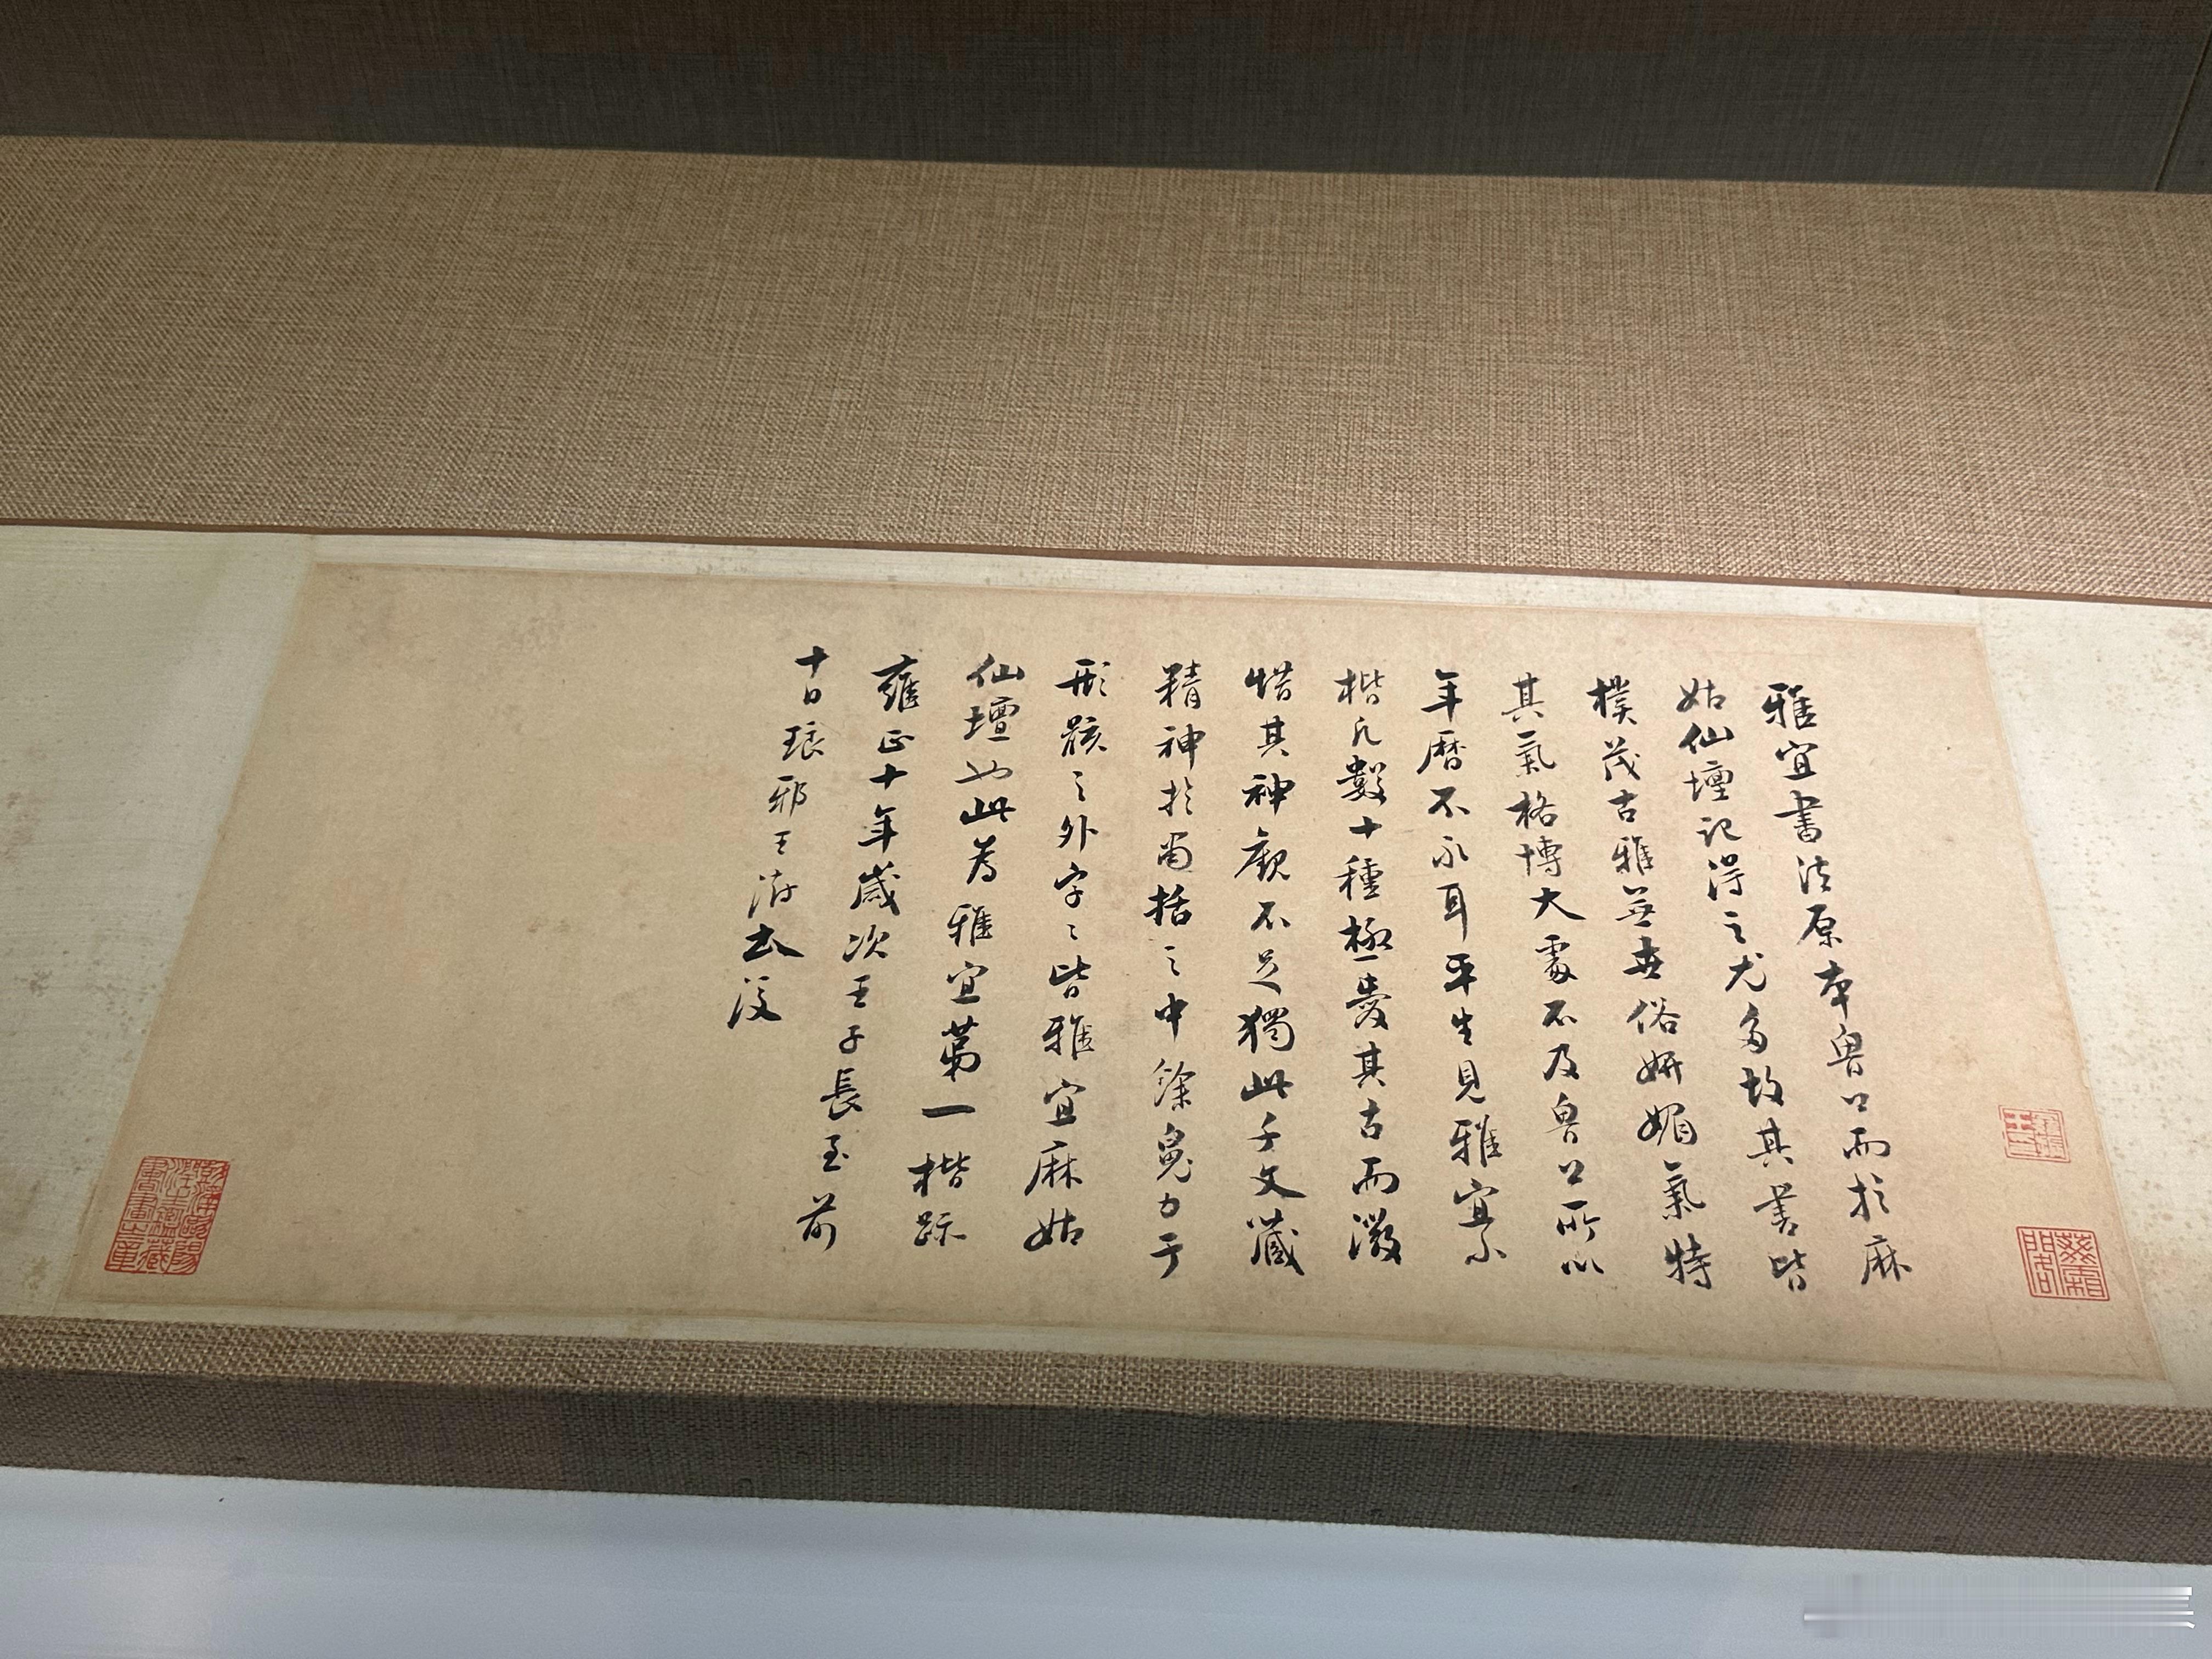 雅宜書法原本魯公而於麻
姑仙壇記得之尤多故其書皆
樸茂古雅無世俗妍媚氣特
其氣格博大處不及魯公所以
年曆不永耳平生見雅宜案
楷凡數十種極愛其古而澂
惜其神觀不足獨此千文藏
精神於畱括之中餘勇力于
形骸之外字〻皆雅宜麻姑
仙壇也此為雅宜苐一楷跡
雍正十年歲次壬子長至前
十日琅邪王澍書後
蕤霜閣
書畫之章